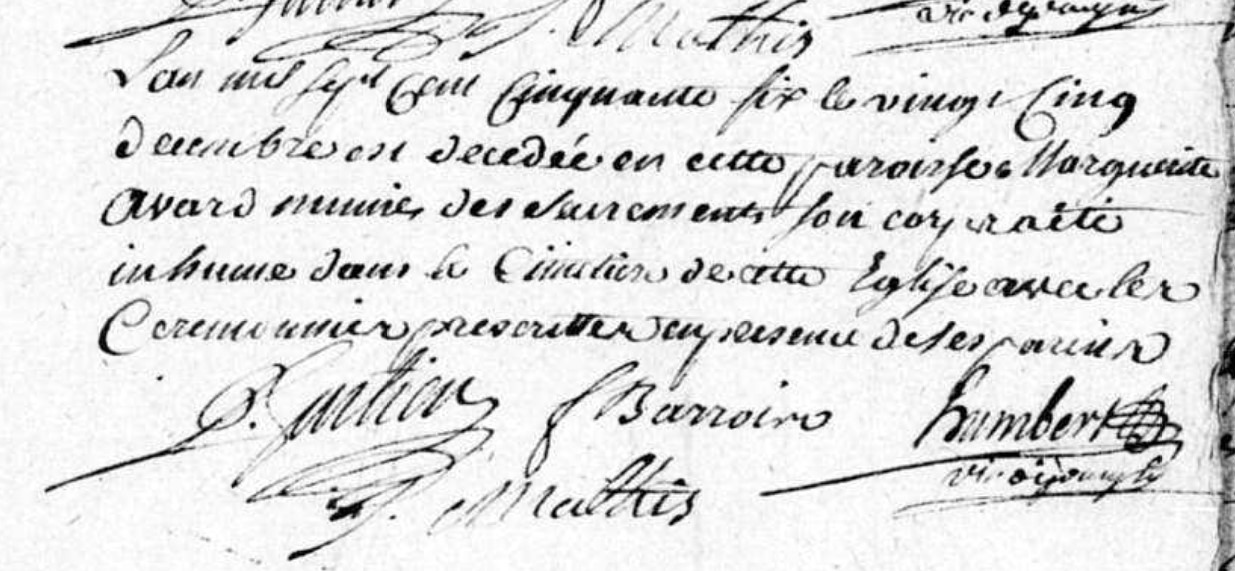 J. Mathis
L'an mil sept cent cinquante six le vingt cinq
decembre est decedée en cette paroisse Marguerite
avard munie des sacrements son corp a été
inhume dans le cimetiere de cette Eglise avec les
Ceremonies prescrittes en presence de ses parins
Barroire humbert
Mathis